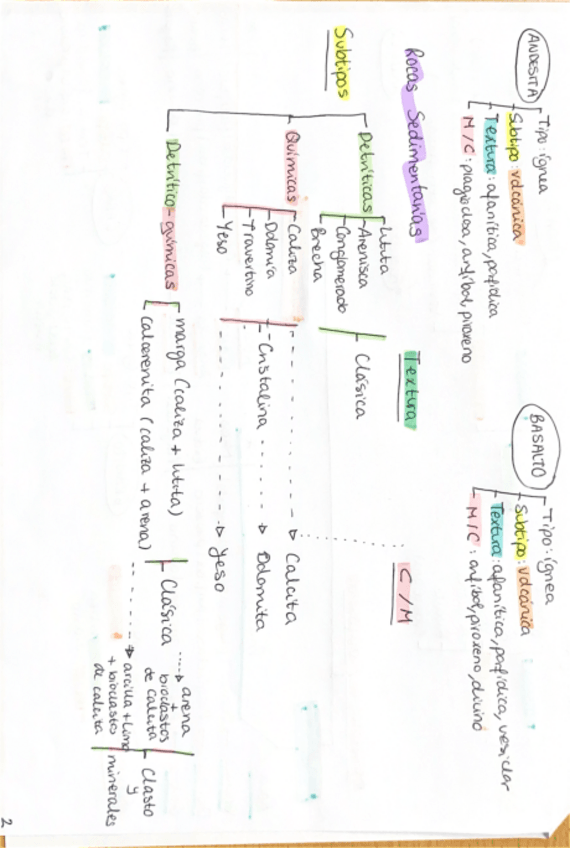 ANDESITA
Tipo: ígnea
Subtipo: volcánica
Textura: afanítica, porfídica
M/C: plagioclasa, anfíbol, piroxeno
BASALTO
Tipo: ígnea
Subtipo: volcánica
Textura: afanítica, porfídica, vesicular
M/C: anfíbol, piroxeno, olivino
Rocas Sedimentarias
Subtipos
Textura
C/M
Detríticas
Lutita
Arenisca
Conglomerado
Brecha
Clásica
Químicas
Caliza
Dolomía
Travertino
Yeso
Cristalina
Calcita
Dolomita
Yeso
Detrítico-químicas
marga (caliza + lutita)
calcarenita (caliza + arena)
Clásica
arena
+
bioclastos
de calcita
arcilla + limo
+ bioclastos
de calcita
Clasto
y
minerales
2